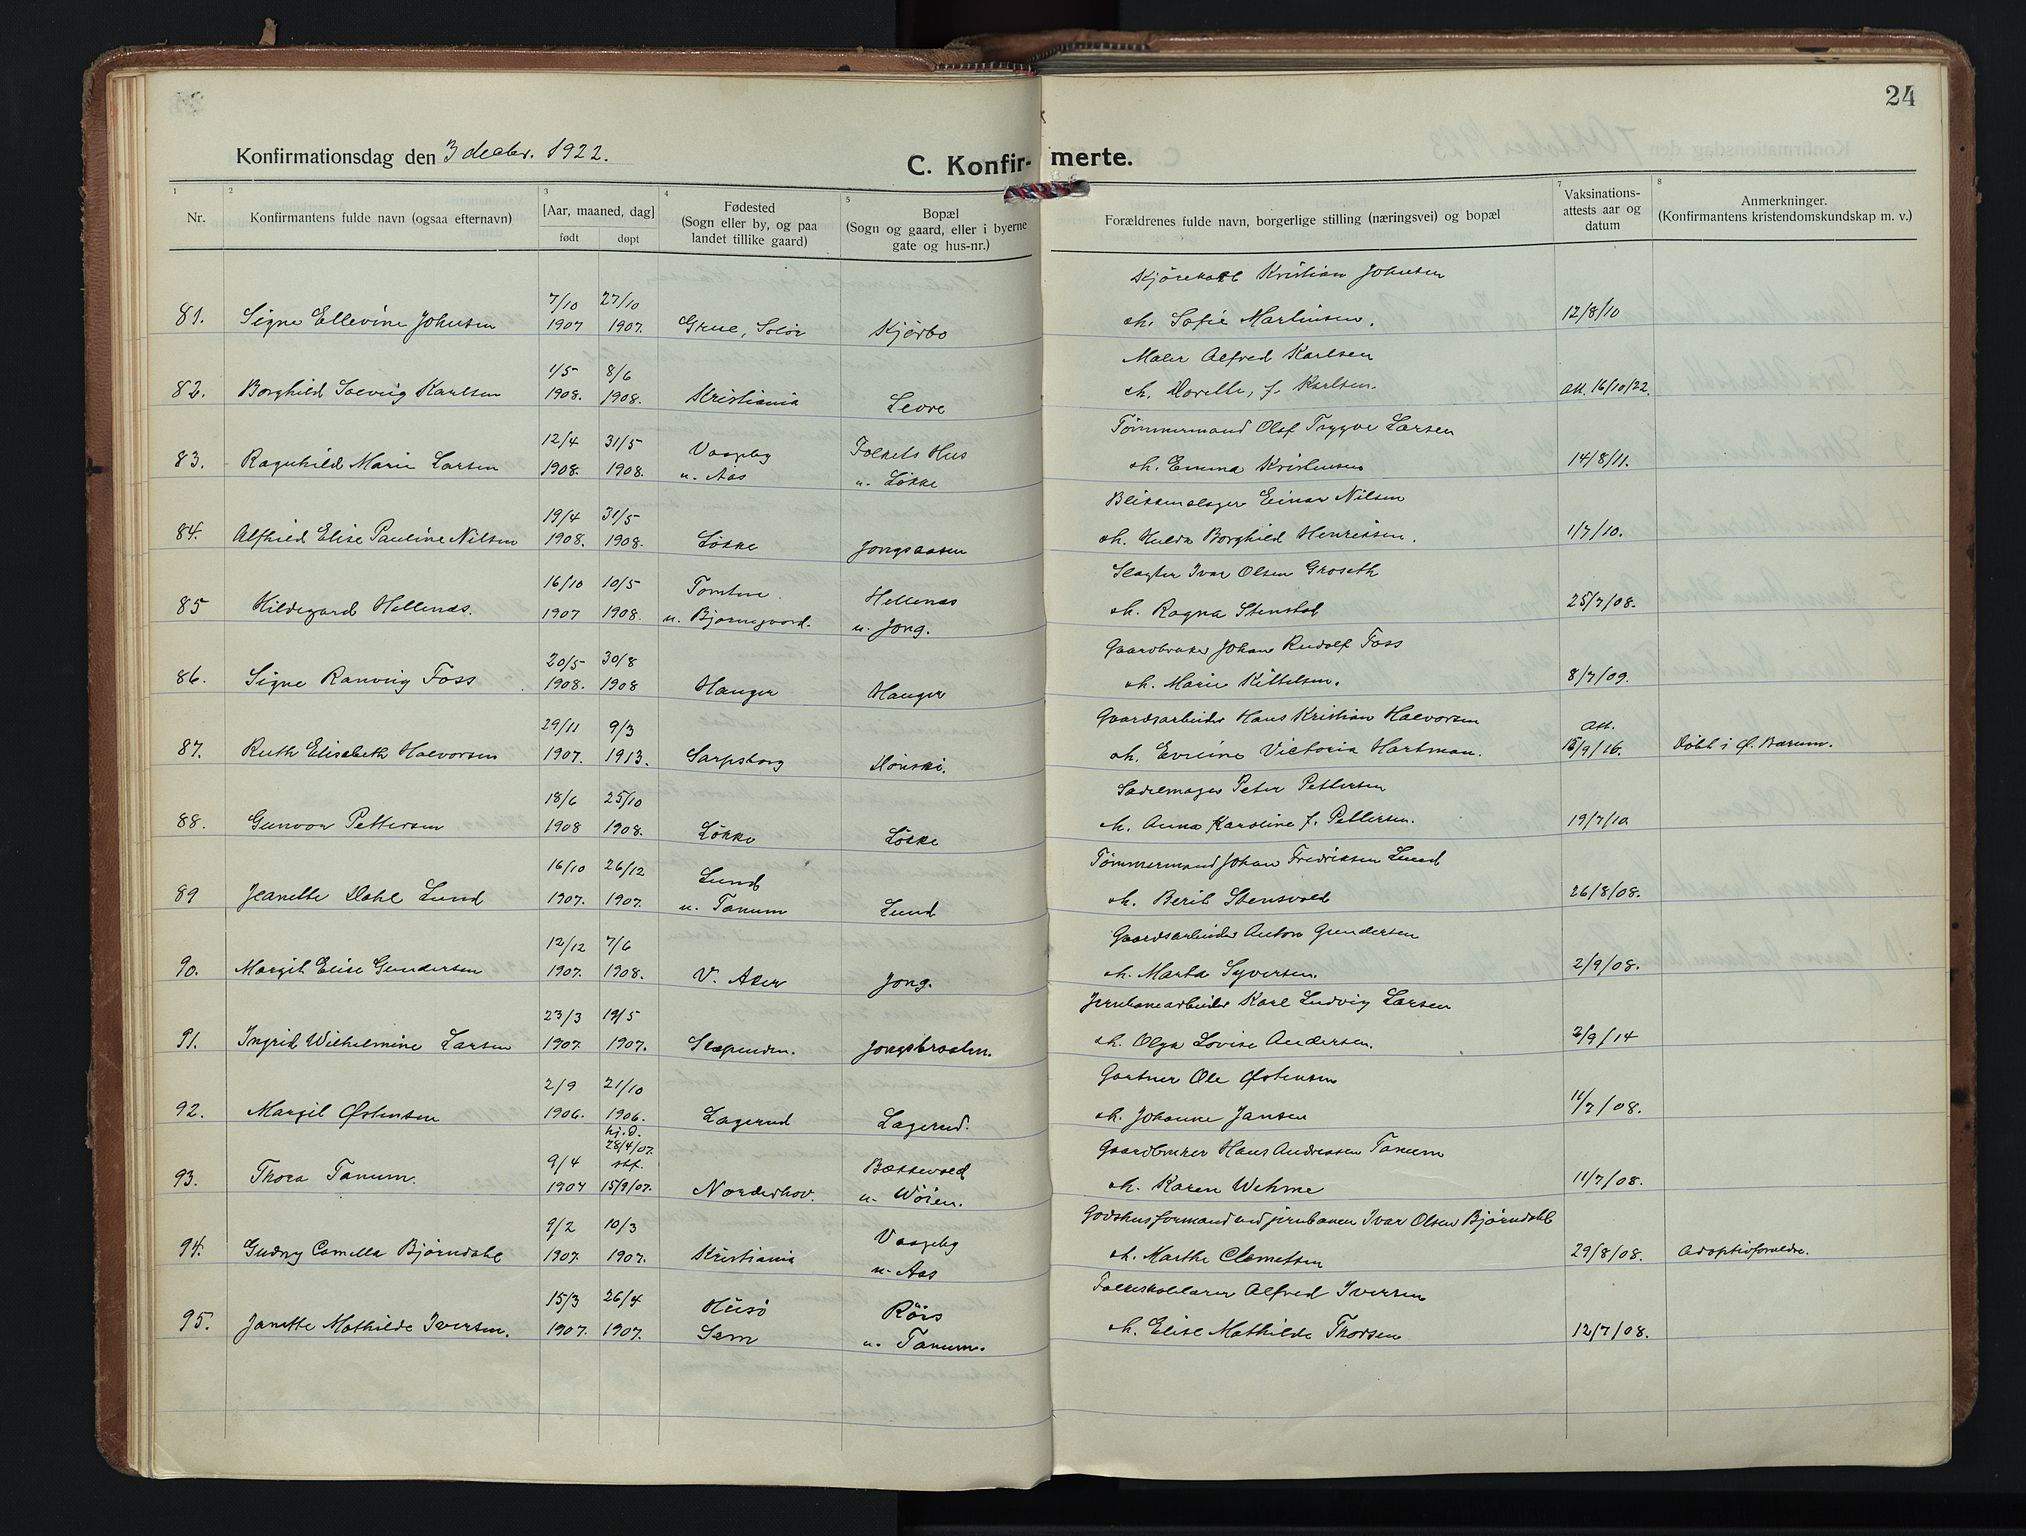 24
Konfirmationsdag den 3 decbr. 1922.
C. Konfir- merte.
1 2 3 4 5 7 8
Nr.
Konfirmantens fulde navn (ogsaa efternavn)
[Aar, maaned, dag]
født døpt
Fødested
(Sogn eller by, og paa
landet tillike gaard)
Bopæl
(Sogn og gaard, eller i byerne
gate og hus-nr.)
Forældrenes fulde navn, borgerlige stilling (næringsvei) og bopæl
Vaksinations-
attests aar og
datum
Anmerkninger.
(Konfirmantens kristendomskundskap m. v.)
Kjørekarl Kristian Johnsen
7/10 27/10
81. Signe Ellevine Johnsen 1907 1907. Grue, Solør Kjørbo oh. Sofie Martinsen. 12/8/10
Maler Alfred Karlsen
1/5 8/6
82. Borghild Solveig Karlsen 1908. 1908. Kristiania Levre oh. Dorthe, f. Karlsen. Att. 16/10/22.
Tømmermand Olaf Trygve Larsen
12/4 31/5 Vaageby Folkets Hus
83. Ragnhild Marie Larsen 1908. 1908. u. Aas u. Løkke oh. Emma Kristensen 14/8/11.
Blikkenslager Einar Nilsen
19/4 31/5
84. Alfhild Elise Pauline Nilsen 1908. 1908. Løkke Jongsaasen oh. Hulda Borghild Henriksen. 1/7/10.
Slagter Ivar Olsen Groseth
16/10 10/5 Tomten Hellenæs
85 Hildegard Hellenæs. 1907 1908. u. Bjørnegaard. u. Jong. oh. Ragna Stensbøl 25/7/08.
Gaardbruker Johan Rudolf Foss
20/5 30/8
86. Signe Ranveig Foss 1908. 1908 Hauger Hauger oh. Marie Kittelsen. 8/7/09.
Gaardsarbeider Hans Kristian Halvorsen
29/11 9/3 Att.
87. Ruth Elisabeth Halvorsen 1907. 1913. Sarpsborg Hønski. oh. Eveline Victoria Hartman. 15/9/16. Døbt i Ø. Bærum.
Sadelmager Peter Pettersen
18/6 25/10
88. Gunvor Pettersen 1908 1908. Løkke Løkke oh. Anna Karoline f. Pettersen. 19/7/10
Tømmermand Johan Fredriksen Lund
16/10 26/12 Lund
89 Jeanette Dahl Lund 1907. 1907. u. Tanum Lund oh. Berit Stensvold 26/8/08.
Gaardsarbeider Anton Gundersen
12/12 7/6
90. Margit Elise Gundersen 1907. 1908. V. Aker Jong. oh. Marta Syversen. 2/9/08.
Jernbanearbeider Karl Ludvig Larsen
23/3 19/5
91. Ingrid Wilhelmine Larsen 1907. 1907. Slæpenden. Jongsbraaten. oh. Olga Lovise Andersen. 3/9/14
Gartner Ole Østensen
2/9 21/10
92. Margit Østensen 1906. 1906. Lagerud Lagerud. oh. Johanne Jansen 11/7/08.
hj.d.
28/4/07. Gaardbruker Hans Andreassen Tanum
9/4 stf. Bættevold
93. Thora Tanum. 1907 15/9/07. Norderhov. u. Wøien. oh. Karen Wehme 11/7/08.
Godshusformand ved jernbanen Ivar Olsen Bjørndahl
9/2 10/3 Vaageby
94. Gudny Camilla Bjørndahl 1907. 1907. Kristiania u. Aas oh. Marthe Clemetsen 29/8/08. Adoptivforældre.
Folkeskolelærer Alfred Iversen
15/3 26/4 Husø Røis
95. Janette Mathilde Iversen. 1907. 1907. Sem u. Tanum. oh. Elise Mathilde Thorsen 12/7/08.